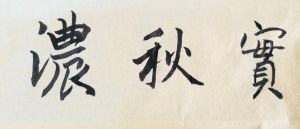 濃秋實